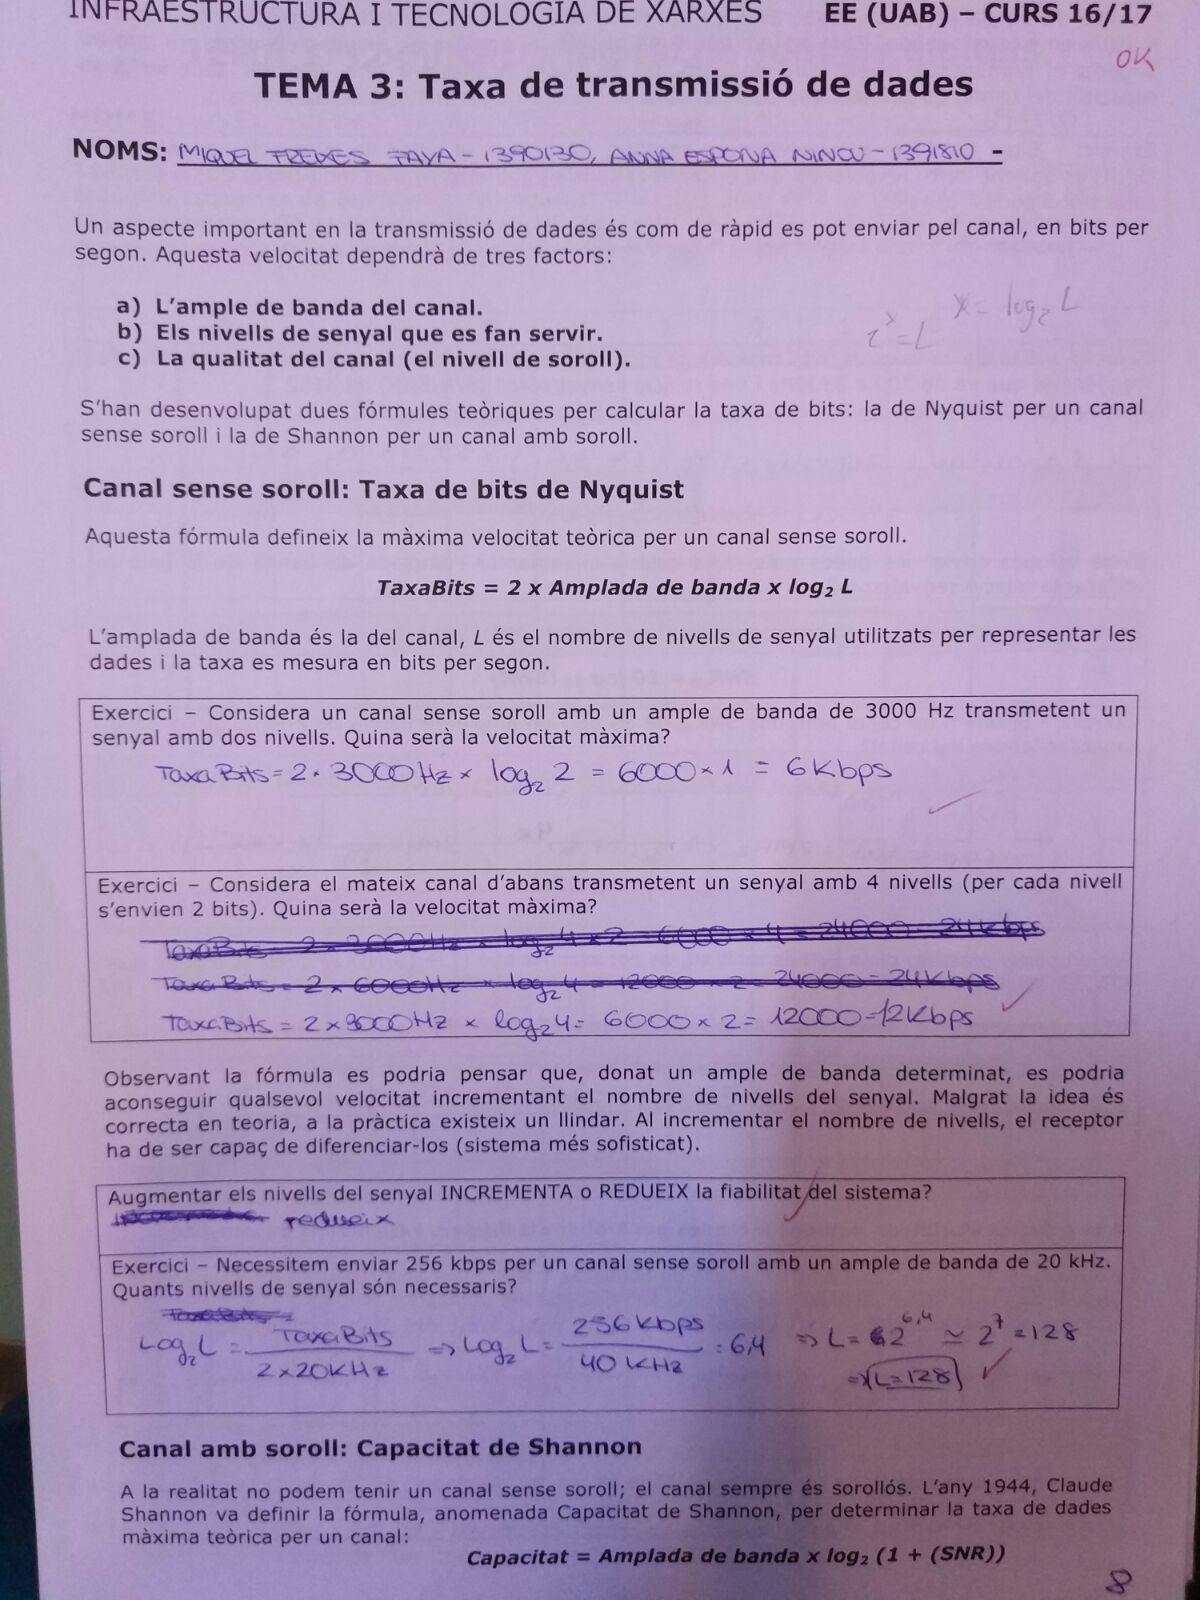 INFRAESTRUCTURA I TECNOLOGIA DE XARXES EE (UAB) – CURS 16/17
OK
TEMA 3: Taxa de transmissió de dades
NOMS: MIQUEL FREIXES FAYA - 1390130, ANNA ESPONA NINOU - 1391810 -
Un aspecte important en la transmissió de dades és com de ràpid es pot enviar pel canal, en bits per
segon. Aquesta velocitat dependrà de tres factors:
a) L'ample de banda del canal.
b) Els nivells de senyal que es fan servir.
c) La qualitat del canal (el nivell de soroll).
2^x = L x = log₂ L
S'han desenvolupat dues fórmules teòriques per calcular la taxa de bits: la de Nyquist per un canal
sense soroll i la de Shannon per un canal amb soroll.
Canal sense soroll: Taxa de bits de Nyquist
Aquesta fórmula defineix la màxima velocitat teòrica per un canal sense soroll.
TaxaBits = 2 x Amplada de banda x log₂ L
L'amplada de banda és la del canal, L és el nombre de nivells de senyal utilitzats per representar les
dades i la taxa es mesura en bits per segon.
Exercici – Considera un canal sense soroll amb un ample de banda de 3000 Hz transmetent un
senyal amb dos nivells. Quina serà la velocitat màxima?
TaxaBits = 2 × 3000 Hz × log₂ 2 = 6000 × 1 = 6Kbps
Exercici – Considera el mateix canal d'abans transmetent un senyal amb 4 nivells (per cada nivell
s'envien 2 bits). Quina serà la velocitat màxima?
TaxaBits = 2 × 3000Hz × log₂ 4 × 2 = 6000 × 4 = 24000 = 24Kbps
TaxaBits = 2 × 6000Hz × log₂ 4 = 12000 × 2 = 24000 = 24Kbps
TaxaBits = 2 × 3000Hz × log₂ 4 = 6000 × 2 = 12000 = 12Kbps
Observant la fórmula es podria pensar que, donat un ample de banda determinat, es podria
aconseguir qualsevol velocitat incrementant el nombre de nivells del senyal. Malgrat la idea és
correcta en teoria, a la pràctica existeix un llindar. Al incrementar el nombre de nivells, el receptor
ha de ser capaç de diferenciar-los (sistema més sofisticat).
Augmentar els nivells del senyal INCREMENTA o REDUEIX la fiabilitat del sistema?
redueix
Exercici – Necessitem enviar 256 kbps per un canal sense soroll amb un ample de banda de 20 kHz.
Quants nivells de senyal són necessaris?
TaxaBits =
Log₂ L = TaxaBits / 2 × 20KHz => Log₂ L = 256 Kbps / 40 KHz = 6,4 => L = 2^6,4 ≃ 2^7 = 128
=> L = 128
Canal amb soroll: Capacitat de Shannon
A la realitat no podem tenir un canal sense soroll; el canal sempre és sorollós. L'any 1944, Claude
Shannon va definir la fórmula, anomenada Capacitat de Shannon, per determinar la taxa de dades
màxima teòrica per un canal:
Capacitat = Amplada de banda x log₂ (1 + (SNR))
8